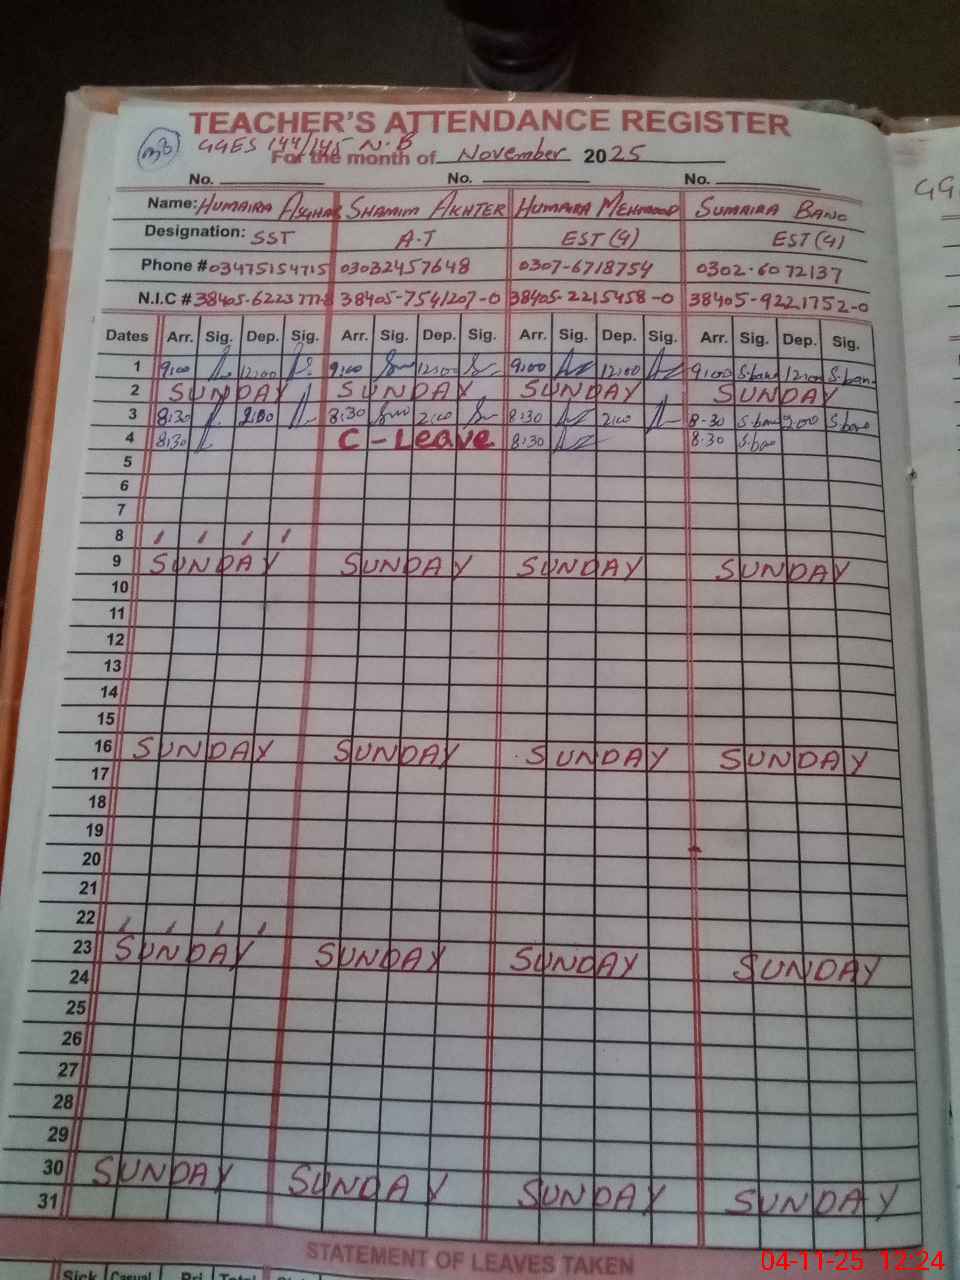 TEACHER'S ATTENDANCE REGISTER
GGES 144/145 N.B
For the month of November 2025
No. No. No.
Name: HUMAIRA ASGHAR SHAMIM AKHTER HUMAIRA MEHMOOD SUMAIRA BANO
Designation: SST A.T EST (G) EST (G)
Phone # 03475154715 03032457648 0307-6718754 0302-6072137
N.I.C # 38405-7541207-0 38405-2215458-0 38405-9221752-0
Dates Arr. Sig. Dep. Sig. Arr. Sig. Dep. Sig. Arr. Sig. Dep. Sig. Arr. Sig. Dep. Sig.
1 9:00 12:00 9:00 12:00 9:00 12:00 9:00 S.bano 12:00 S.bano
2 SUNDAY SUNDAY SUNDAY SUNDAY
3 8:30 2:00 8:30 2:00 8:30 2:00 8-30 S.bano 2:00 S.bano
4 8:30 C-Leave 8:30 8:30 S.bano
5
6
7
8
9 SUNDAY SUNDAY SUNDAY SUNDAY
10
11
12
13
14
15
16 SUNDAY SUNDAY SUNDAY SUNDAY
17
18
19
20
21
22
23 SUNDAY SUNDAY SUNDAY SUNDAY
24
25
26
27
28
29
30 SUNDAY SUNDAY SUNDAY SUNDAY
31
STATEMENT OF LEAVES TAKEN
Sick Casual Pri Total
04-11-25 12:24